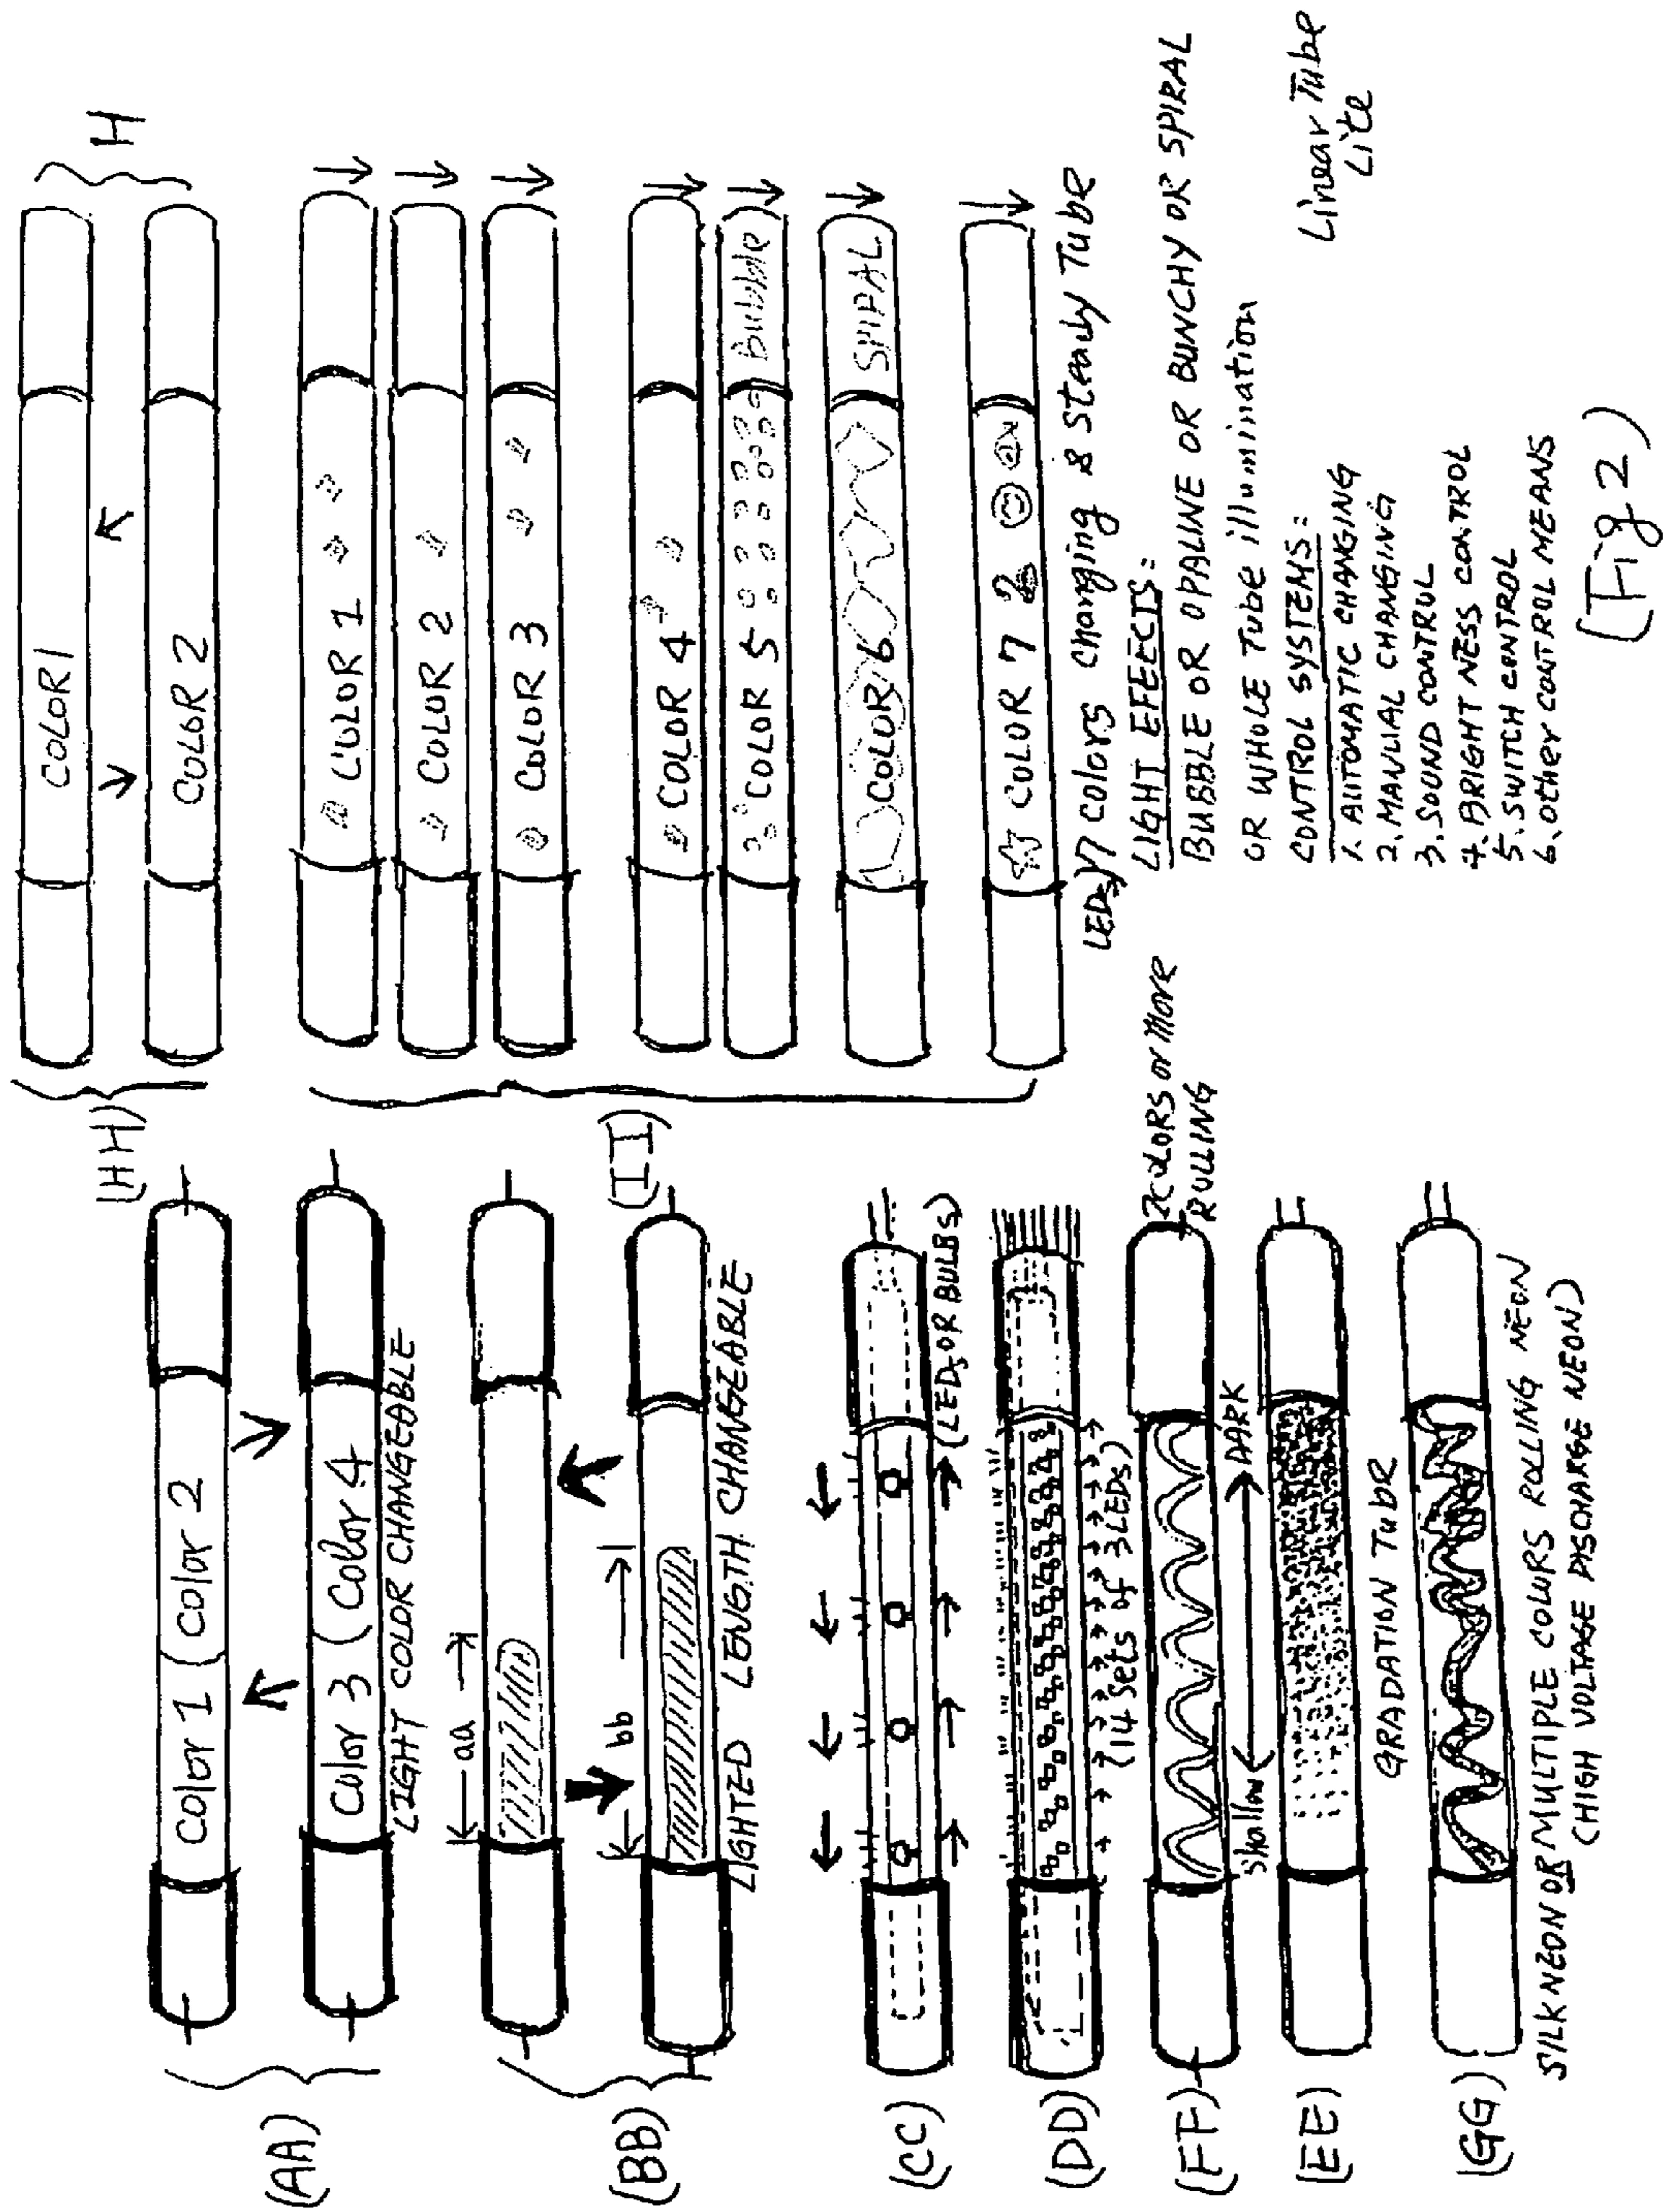 (AA)
Color 1 ( Color 2
Color 3 ( Color 4
LIGHT COLOR CHANGEABLE
(BB)
aa
bb
LIGHTED LENGTH CHANGEABLE
(CC)
(LEDs OR BULBS)
(DD)
(14 Sets of 3LEDs)
(FF)
2COLORS or More
ROLLING
Shallow
DARK
(EE)
GRADATION TUBE
(GG)
SILK NEON OR MULTIPLE COLORS ROLLING NEON
(HIGH VOLTAGE DISCHARGE NEON)
(HH)
COLOR 1
COLOR 2
H
(II)
COLOR 1
COLOR 2
COLOR 3
COLOR 4
COLOR 5
Bubble
COLOR 6
SPIRAL
COLOR 7
LEDs 7 Colors Changing & Steady Tube
LIGHT EFFECTS:
BUBBLE OR OPALINE OR BUNCHY OR SPIRAL
OR WHOLE TUBE illumination
CONTROL SYSTEMS:
1. AUTOMATIC CHANGING
2. MANUAL CHANGING
3. SOUND CONTROL
4. BRIGHT NESS CONTROL
5. SWITCH CONTROL
6. Other CONTROL MEANS
Linear Tube
Lite
(Fig 2)